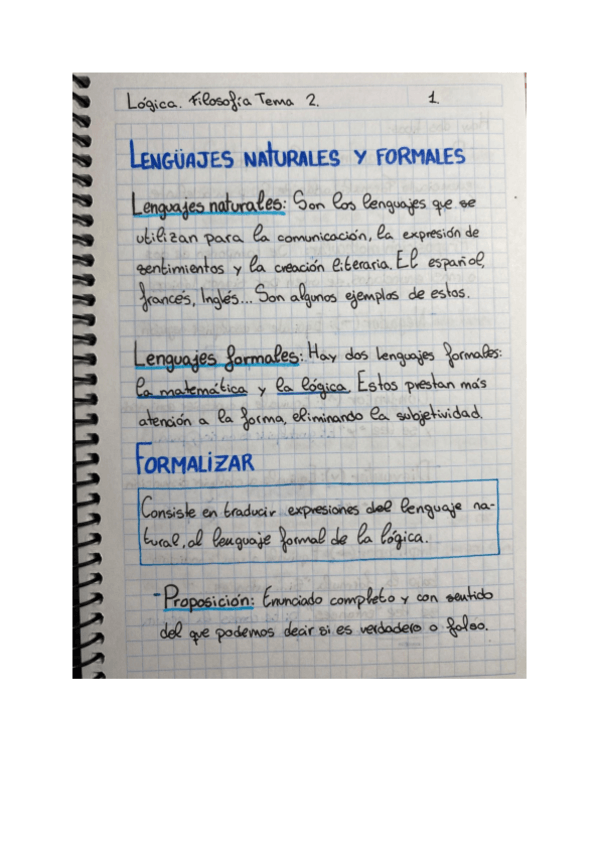 Lógica. Filosofía Tema 2. 1.
LENGÜAJES NATURALES Y FORMALES
Lenguajes naturales: Son los lenguajes que se
utilizan para la comunicación, la expresión de
sentimientos y la creación literaria. El español,
francés, Inglés... Son algunos ejemplos de estos.
Lenguajes formales: Hay dos lenguajes formales:
la matemática y la lógica. Estos prestan más
atención a la forma, eliminando la subjetividad.
FORMALIZAR
Consiste en traducir expresiones del lenguaje na-
tural, al lenguaje formal de la lógica.
- Proposición: Enunciado completo y con sentido
del que podemos decir si es verdadero o falso.